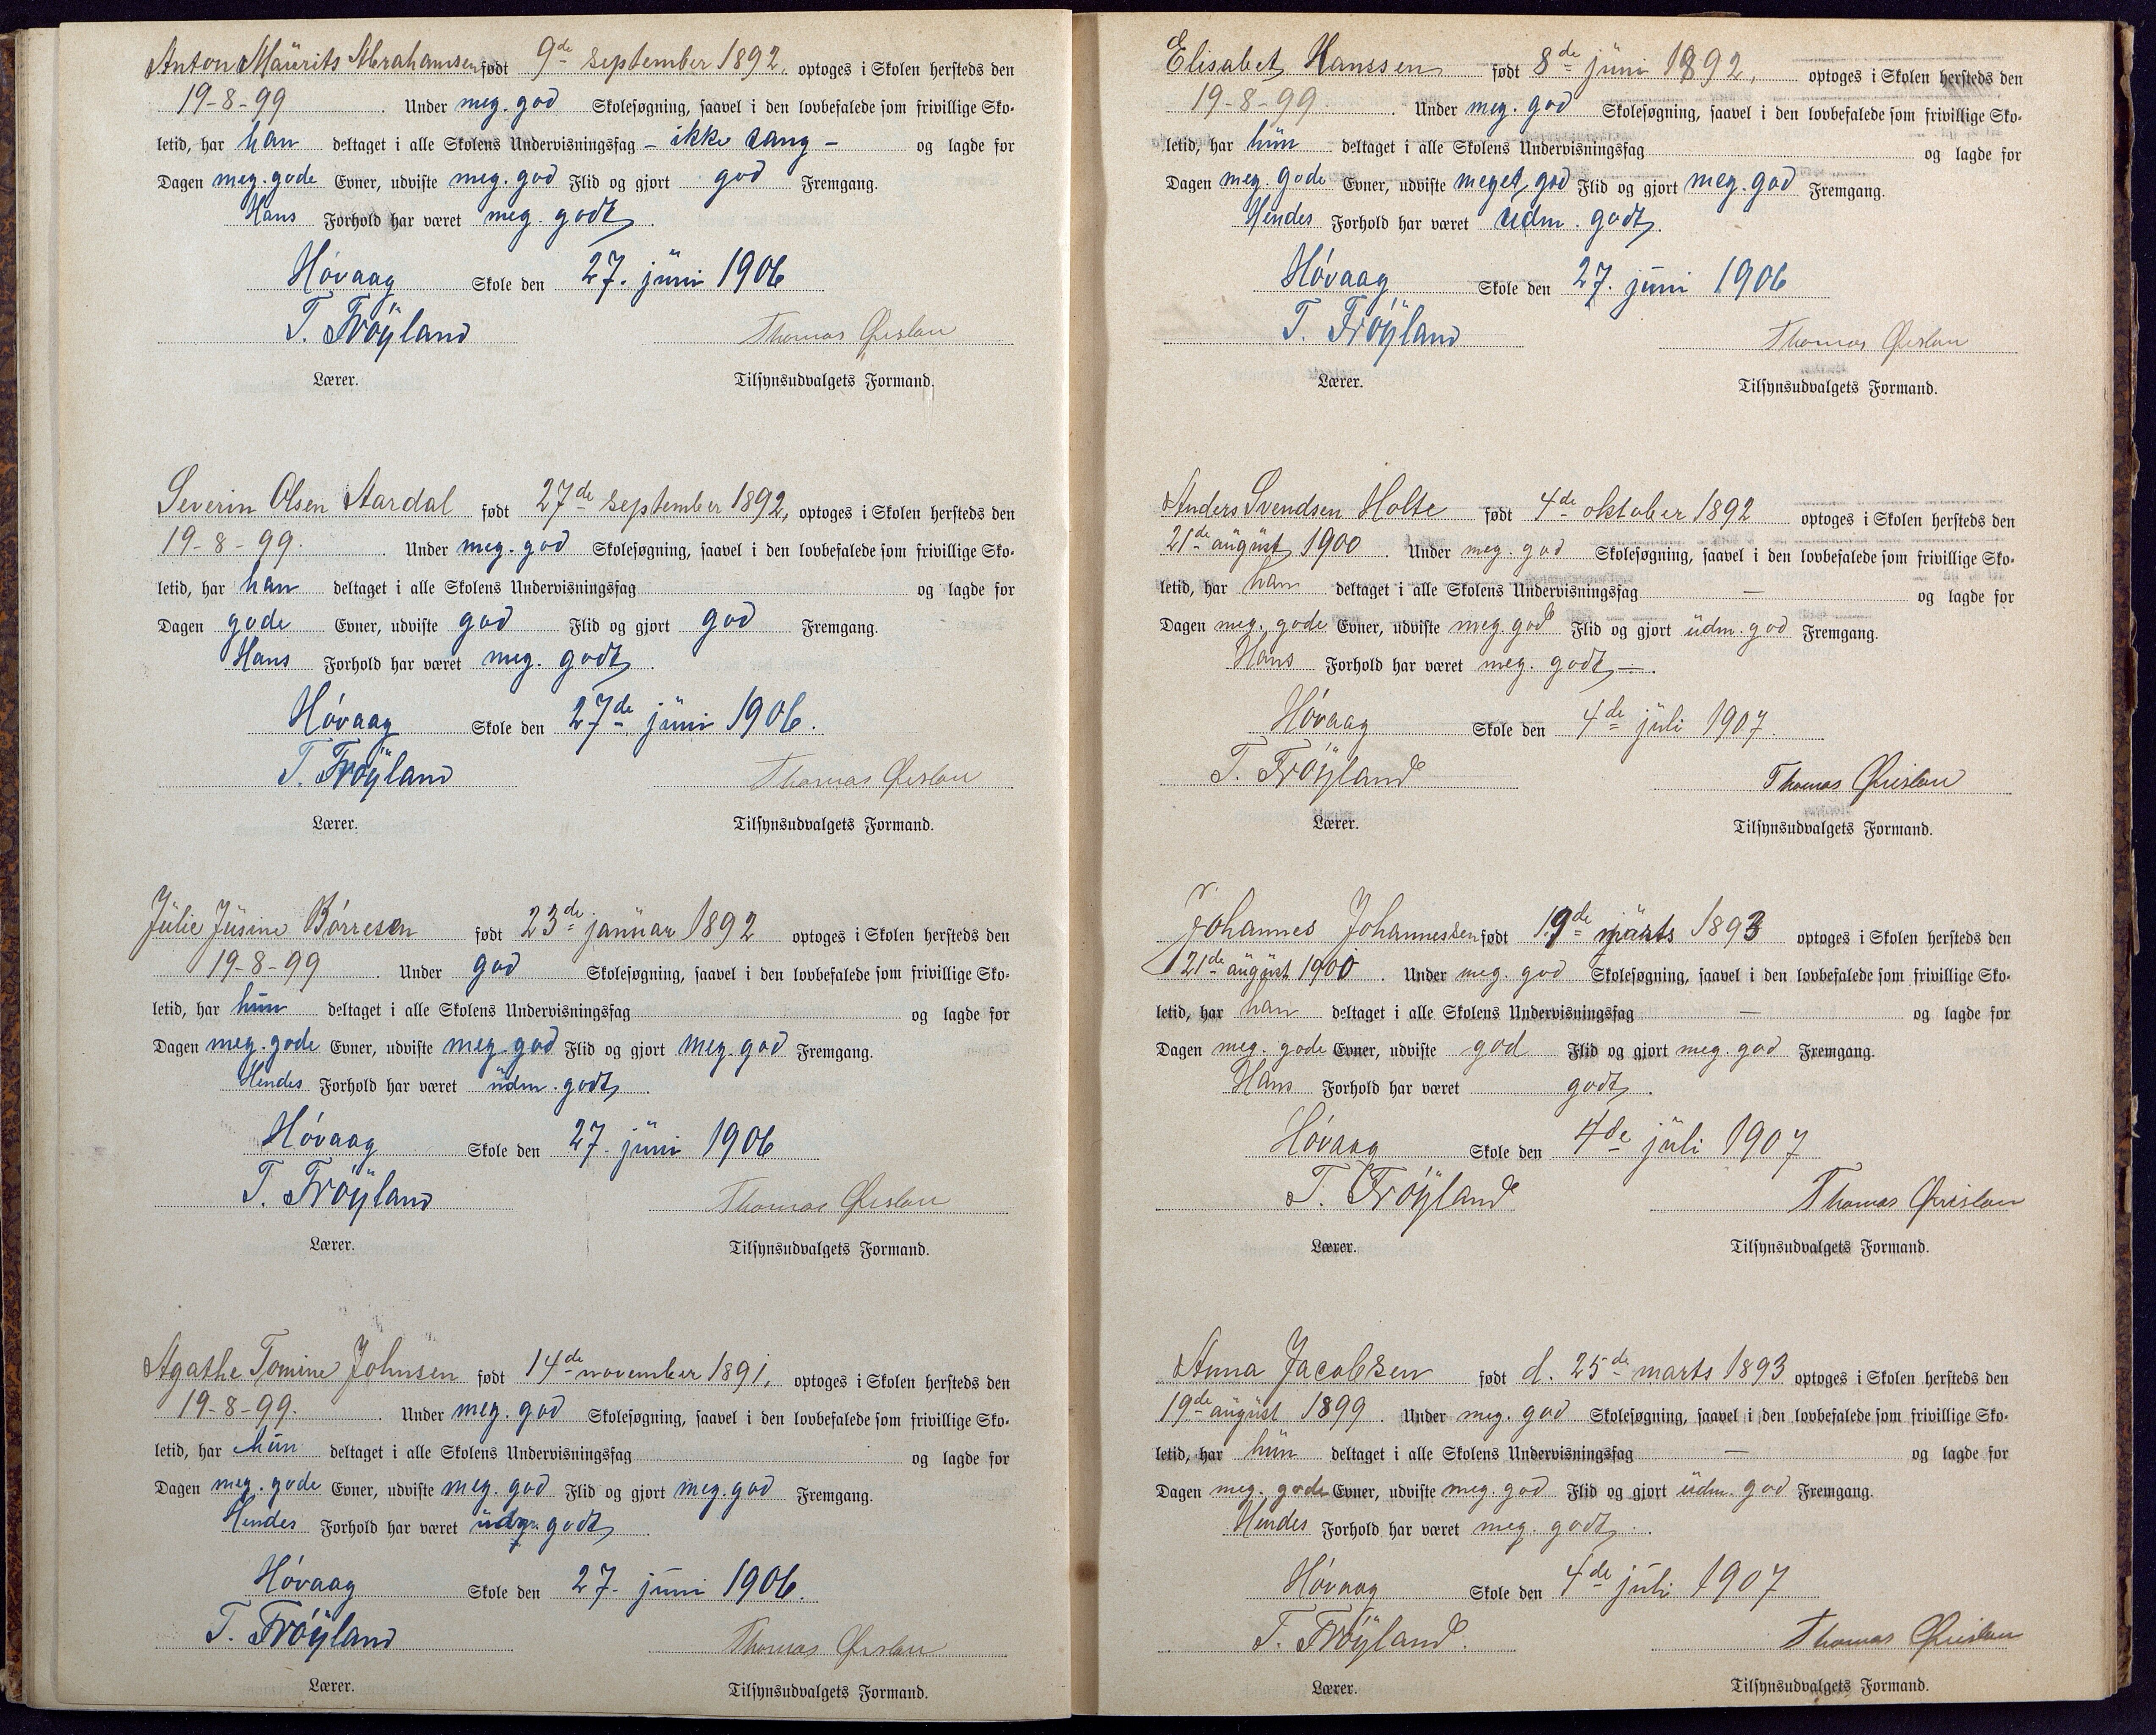 Anton Mäurits Abrahamsen født 9de september 1892. optoges i Skolen hersteds den
19-8-99 . Under meg. god Skolesøgning, saavel i den lovbefalede som frivillige Sko-
letid, har han deltaget i alle Skolens Undervisningsfag - ikke sang - og lagde for
Dagen meg. gode Evner, udviste meg. god Flid og gjort god Fremgang.
Hans Forhold har været meg. godt .
Hóvaag Skole den 27. jüni 1906
T. Fróyland Thomas
Lærer. Tilsynsudvalgets Formand.
Severin Olsen Aardal født 27de september 1892, optoges i Skolen hersteds den
19-8-99. . Under meg. god Skolesøgning, saavel i den lovbefalede som frivillige Sko-
letid, har han deltaget i alle Skolens Undervisningsfag og lagde for
Dagen gode Evner, udviste god Flid og gjort god Fremgang.
Hans Forhold har været meg. godt .
Hóvaag Skole den 27de jüni 1906.
T. Fróyland Thomas
Lærer. Tilsynsudvalgets Formand.
Jülie Jüsine Bórresen født 23de janüar 1892 optoges i Skolen hersteds den
19-8-99 . Under god Skolesøgning, saavel i den lovbefalede som frivillige Sko-
letid, har hün deltaget i alle Skolens Undervisningsfag og lagde for
Dagen meg. gode Evner, udviste meg. god Flid og gjort meg. god Fremgang.
Hendes Forhold har været üdm. godt .
Hóvaag Skole den 27. jüni 1906
T. Fróyland Thomas
Lærer. Tilsynsudvalgets Formand.
Agathe Tomine Johnsen født 14de november 1891. optoges i Skolen hersteds den
19-8-99. . Under meg. god Skolesøgning, saavel i den lovbefalede som frivillige Sko-
letid, har hün deltaget i alle Skolens Undervisningsfag og lagde for
Dagen meg. gode Evner, udviste meg. god Flid og gjort meg. god Fremgang.
Hendes Forhold har været üdm. godt .
Hóvaag Skole den 27. jüni 1906.
T. Fróyland Thomas
Lærer. Tilsynsudvalgets Formand.
Elisabet Hanssen født 8de jüni 1892, optoges i Skolen hersteds den
19-8-99 . Under meg. god Skolesøgning, saavel i den lovbefalede som frivillige Sko-
letid, har hün deltaget i alle Skolens Undervisningsfag og lagde for
Dagen meg. gode Evner, udviste meget god Flid og gjort meg. god Fremgang.
Hendes Forhold har været üdm. godt .
Hóvaag Skole den 27. jüni 1906
T. Fróyland Thomas
Lærer. Tilsynsudvalgets Formand.
Anders Svendsen Holte født 4de oktober 1892 optoges i Skolen hersteds den
21de aügüst 1900 . Under meg. god Skolesøgning, saavel i den lovbefalede som frivillige Sko-
letid, har han deltaget i alle Skolens Undervisningsfag — og lagde for
Dagen meg. gode Evner, udviste meg. god Flid og gjort üdm. god Fremgang.
Hans Forhold har været meg. godt — .
Hóvaag Skole den 4de jüli 1907.
T. Fróyland Thomas
Lærer. Tilsynsudvalgets Formand.
Johannes Johannessen født 19de marts 1893 optoges i Skolen hersteds den
21de aügüst 1900 . Under meg. god Skolesøgning, saavel i den lovbefalede som frivillige Sko-
letid, har han deltaget i alle Skolens Undervisningsfag — og lagde for
Dagen meg. gode Evner, udviste god Flid og gjort meg. god Fremgang.
Hans Forhold har været godt .
Hóvaag Skole den 4de jüli 1907
T. Fróyland Thomas
Lærer. Tilsynsudvalgets Formand.
Anna Jacobsen født d. 25de marts 1893 optoges i Skolen hersteds den
19de aügüst 1899 . Under meg. god Skolesøgning, saavel i den lovbefalede som frivillige Sko-
letid, har hün deltaget i alle Skolens Undervisningsfag — og lagde for
Dagen meg. gode Evner, udviste meg. god Flid og gjort üdm. god Fremgang.
Hendes Forhold har været meg. godt .
Hóvaag Skole den 4de jüli 1907
T. Fróyland. Thomas
Lærer. Tilsynsudvalgets Formand.